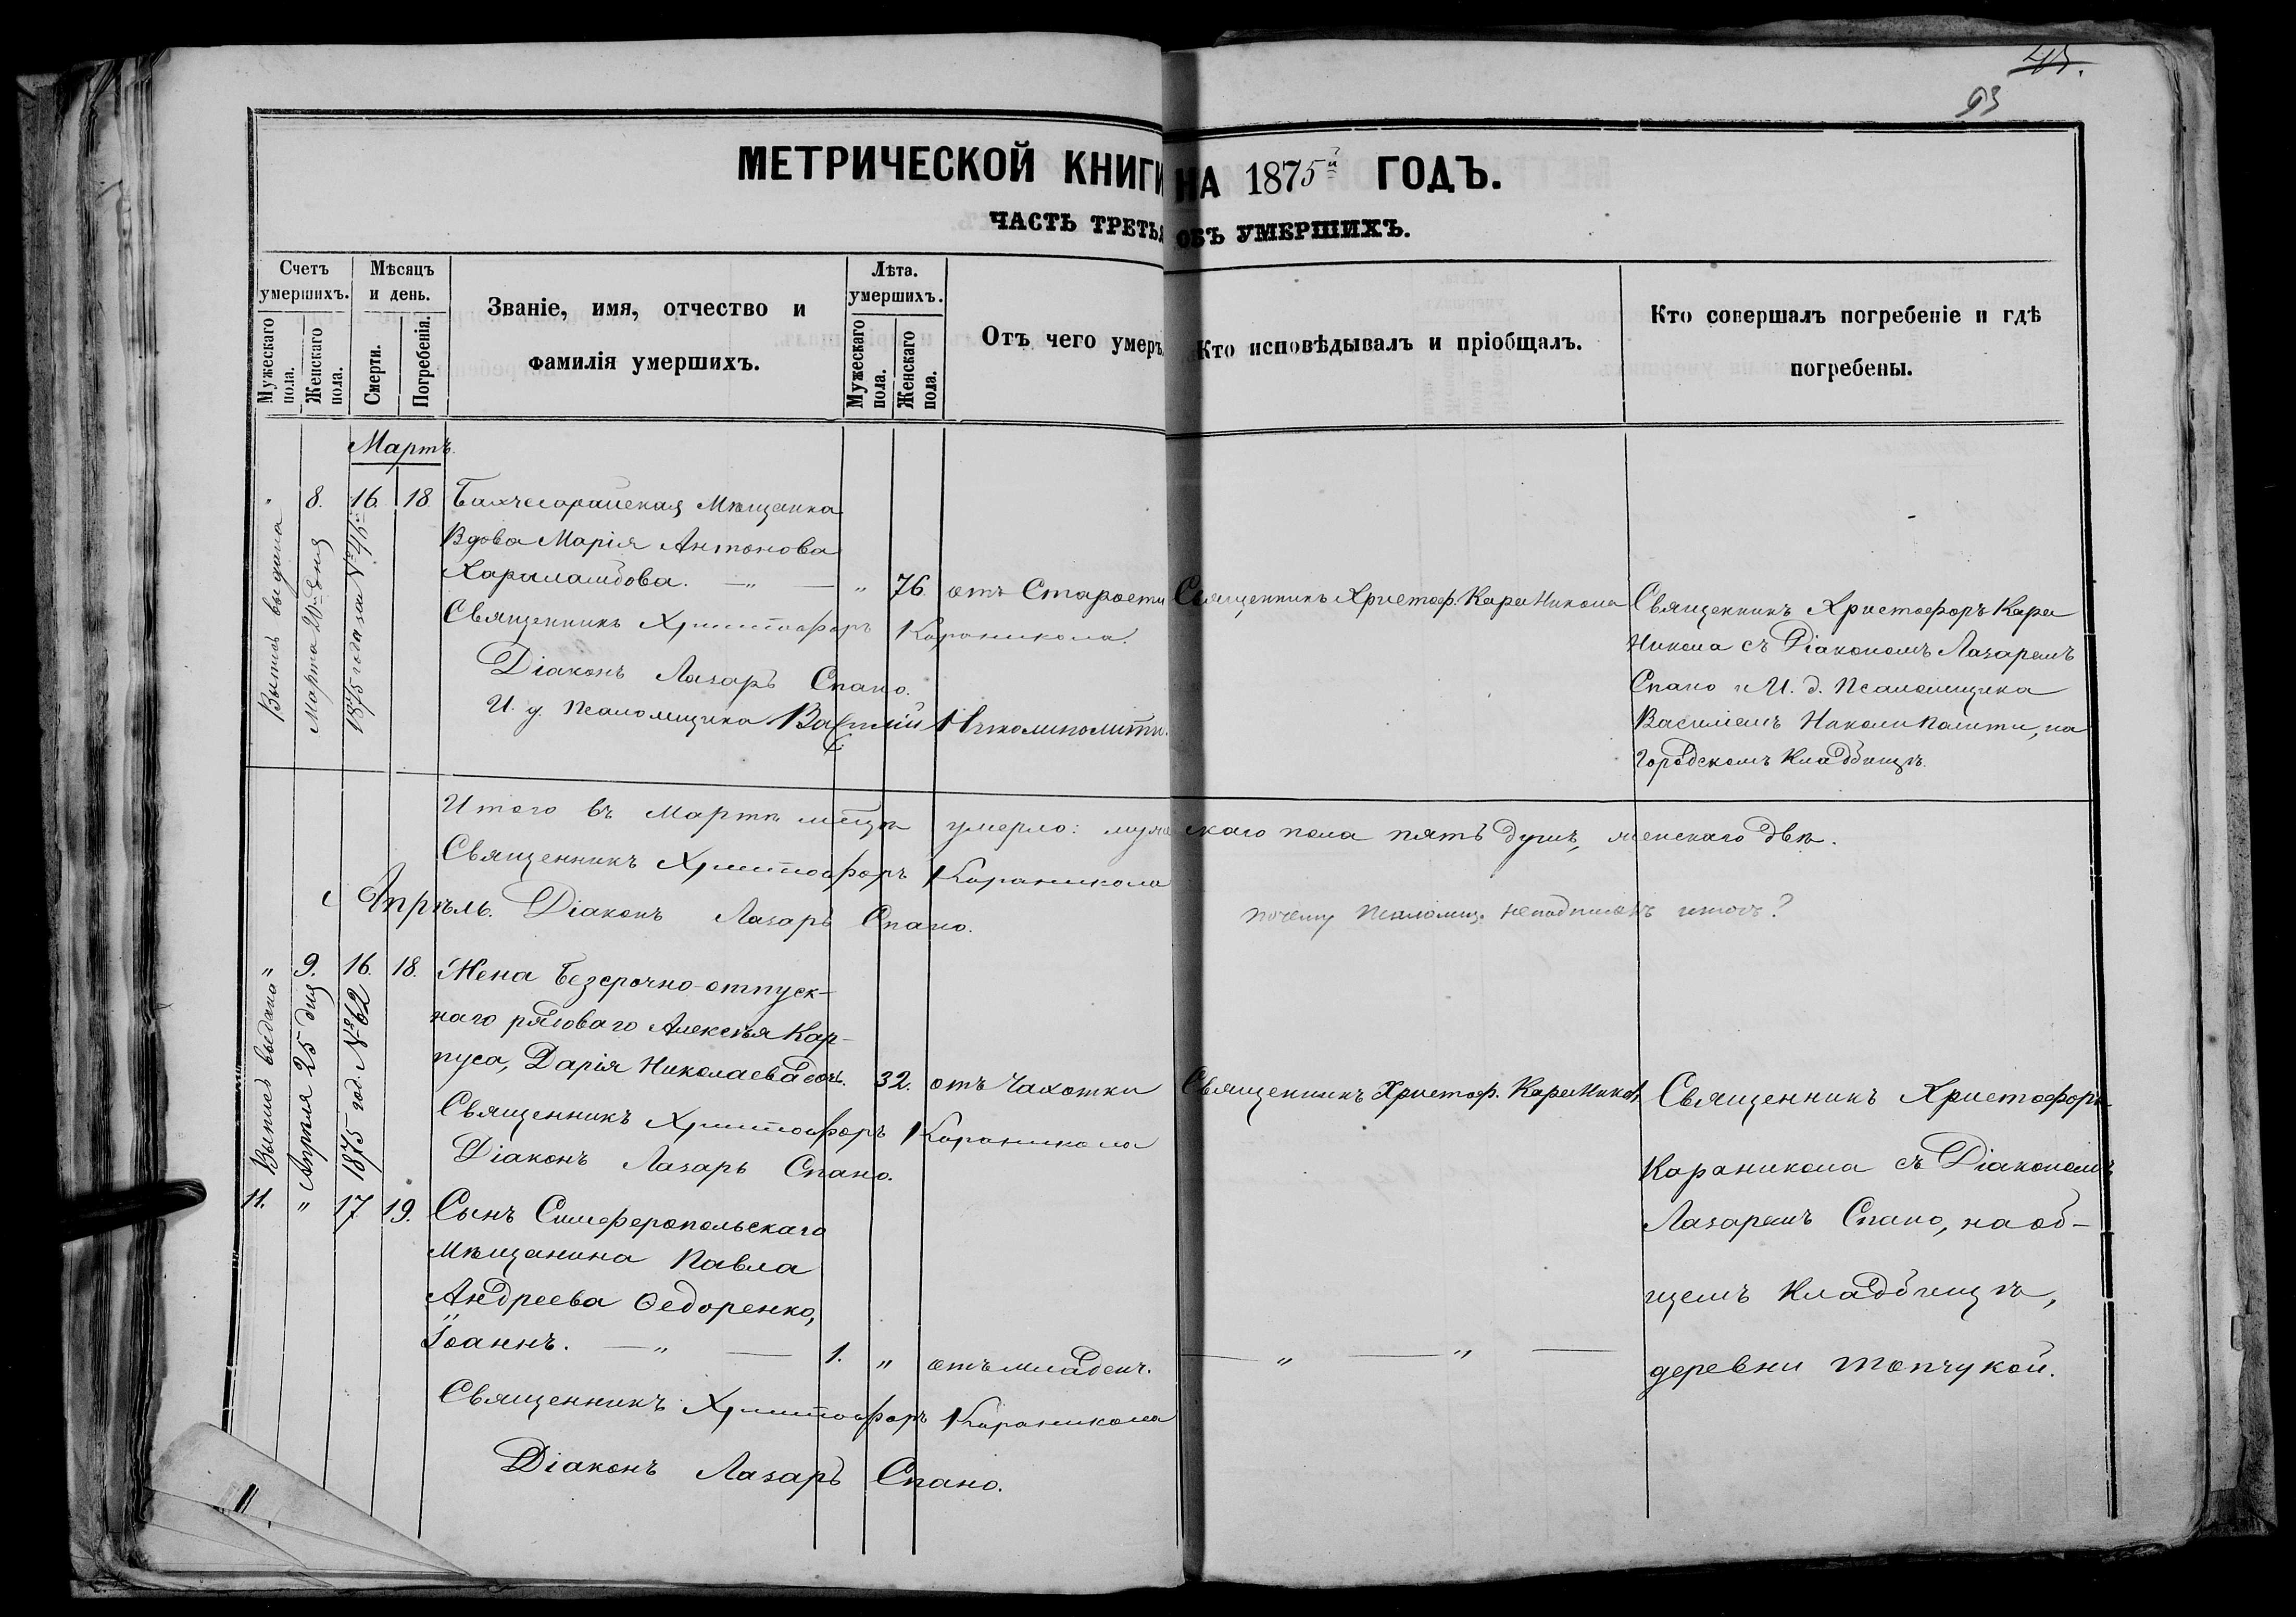 45.
93
МЕТРИЧЕСКОЙ КНИГИ НА 1875й ГОДЪ.
ЧАСТЬ ТРЕТЬЯ ОБЪ УМЕРШИХЪ.
Счетъ умершихъ.
Мужескаго пола.
Женскаго пола.
Мѣсяцъ и день.
Смерти.
Погребенія.
Званіе, имя, отчество и
фамилія умершихъ.
Лѣта. умершихъ.
Мужескаго пола.
Женскаго пола.
Отъ чего умеръ
Кто исповѣдывалъ и пріобщалъ.
Кто совершалъ погребеніе и гдѣ
погребены.
Мартъ.
" 8. 16. 18. Бахчесарайская Мѣщанка
Вдова Марія Антонова
Харалампова. — " — " 76. отъ Старости Священникъ Христоф. КараНикола
Священникъ Христофоръ Караникола.
Діаконъ Лазарь Спано.
И. д. Псаломщика Василий Николиполити.
Выпись выдана
Марта 20го дня
1875 года за №
Священникъ Христофоръ Кара
Никола съ Діакономъ Лазаремъ
Спано и И. д. Псаломщика
Василіемъ Николи Полити, на
Городскомъ Кладбищѣ.
Итого въ Мартѣ мѣсцѣ умерло: мужескаго пола пять душъ, женскаго двѣ.
Священникъ Христофоръ Караникола
Апрѣль. Діаконъ Лазарь Спано.
почему Псаломщ. неподписанъ итогъ?
" 9. 16. 18. Жена Безсрочно-отпуск-
наго рядоваго Алексѣя Кар-
пуса, Дарія Николаева дочь. 32. отъ Чахотки Священникъ Христоф. КараНикол.
Священникъ Христофоръ Караникола
Діаконъ Лазарь Спано.
Выпись выдана
Апрѣля 25 дня
1875 год. № 62
11. " 17 19. Сынъ Симферопольскаго
Мѣщанина Павла
Андреева Ѳедоренко,
Іоаннъ. — " — 1. " отъ младенч. — " — " —
Священникъ Христофоръ Караникола
Діаконъ Лазарь Спано.
Священникъ Христофоръ
Караникола съ Діакономъ
Лазаремъ Спано, на об-
щемъ Кладбищѣ,
деревни Топчукой.